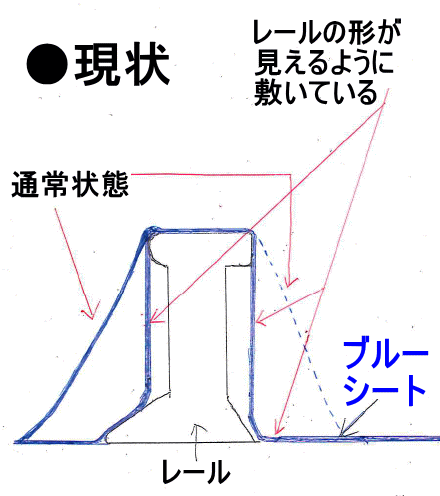 ●現状
レールの形が
見えるように
敷いている
通常状態
ブルー
シート
レール